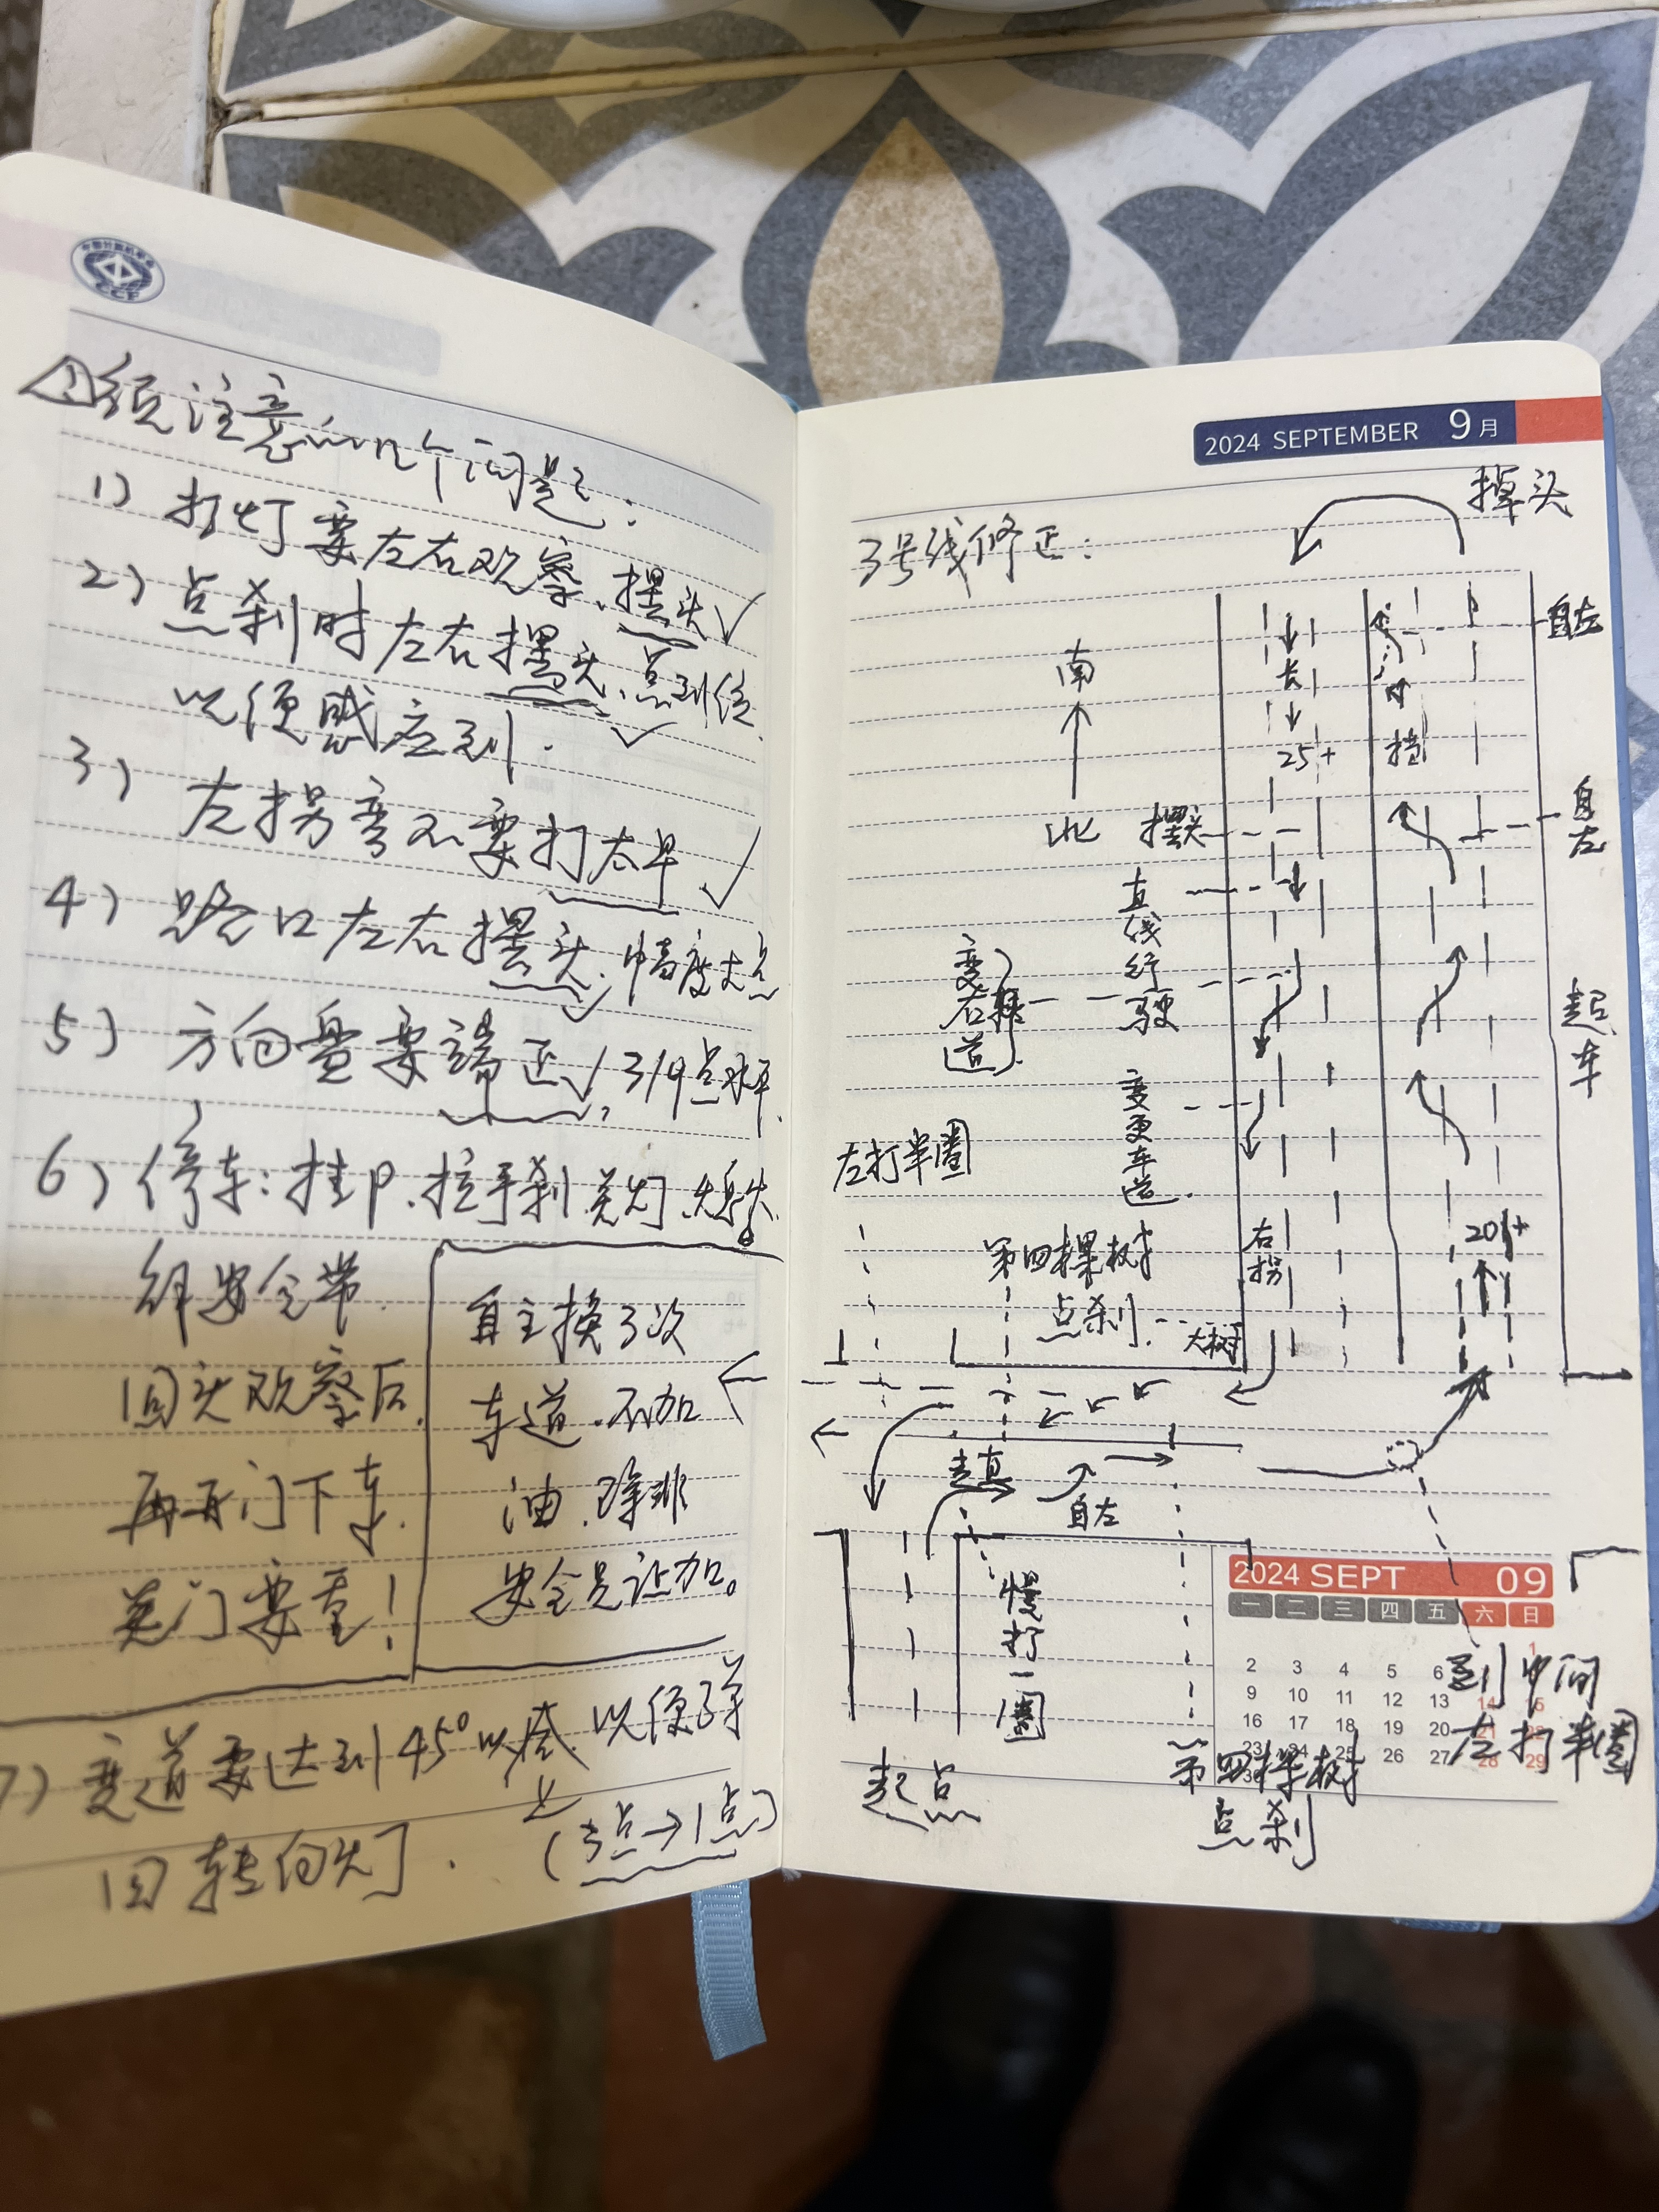 CCF
须注意的几个问题:
1) 打灯要左右观察、摆头✓
2) 点刹时左右摆头、点到位
以便感应到. ✓
3) 左拐弯不要打太早 ✓
4) 路口左右摆头, 幅度大点
5) 方向盘要端正✓, 3/9点水平.
6) 停车: 挂P、拉手刹、关灯、熄火
解安全带.
回头观察后.
再开门下车.
关门要重!
自主换3次
车道.不加
油.除非
安全员让加。
7) 变道要达到45° 以便
回转向灯. (3点→1点)
2024 SEPTEMBER 9月
3号线修正:
掉头
自左
南
北
25+
摆头
自左
直线行驶
变右转道
起车
变更车道.
左打半圈
第四棵树
点刹.
大树
右拐
20+
走直
自左
慢打一圈
起点
第四棵树
点刹
到中间
左打半圈
2024 SEPT 09
一 二 三 四 五 六 日
1
2 3 4 5 6
9 10 11 12 13 14 15
16 17 18 19 20 21 22
23 24 25 26 27 28 29